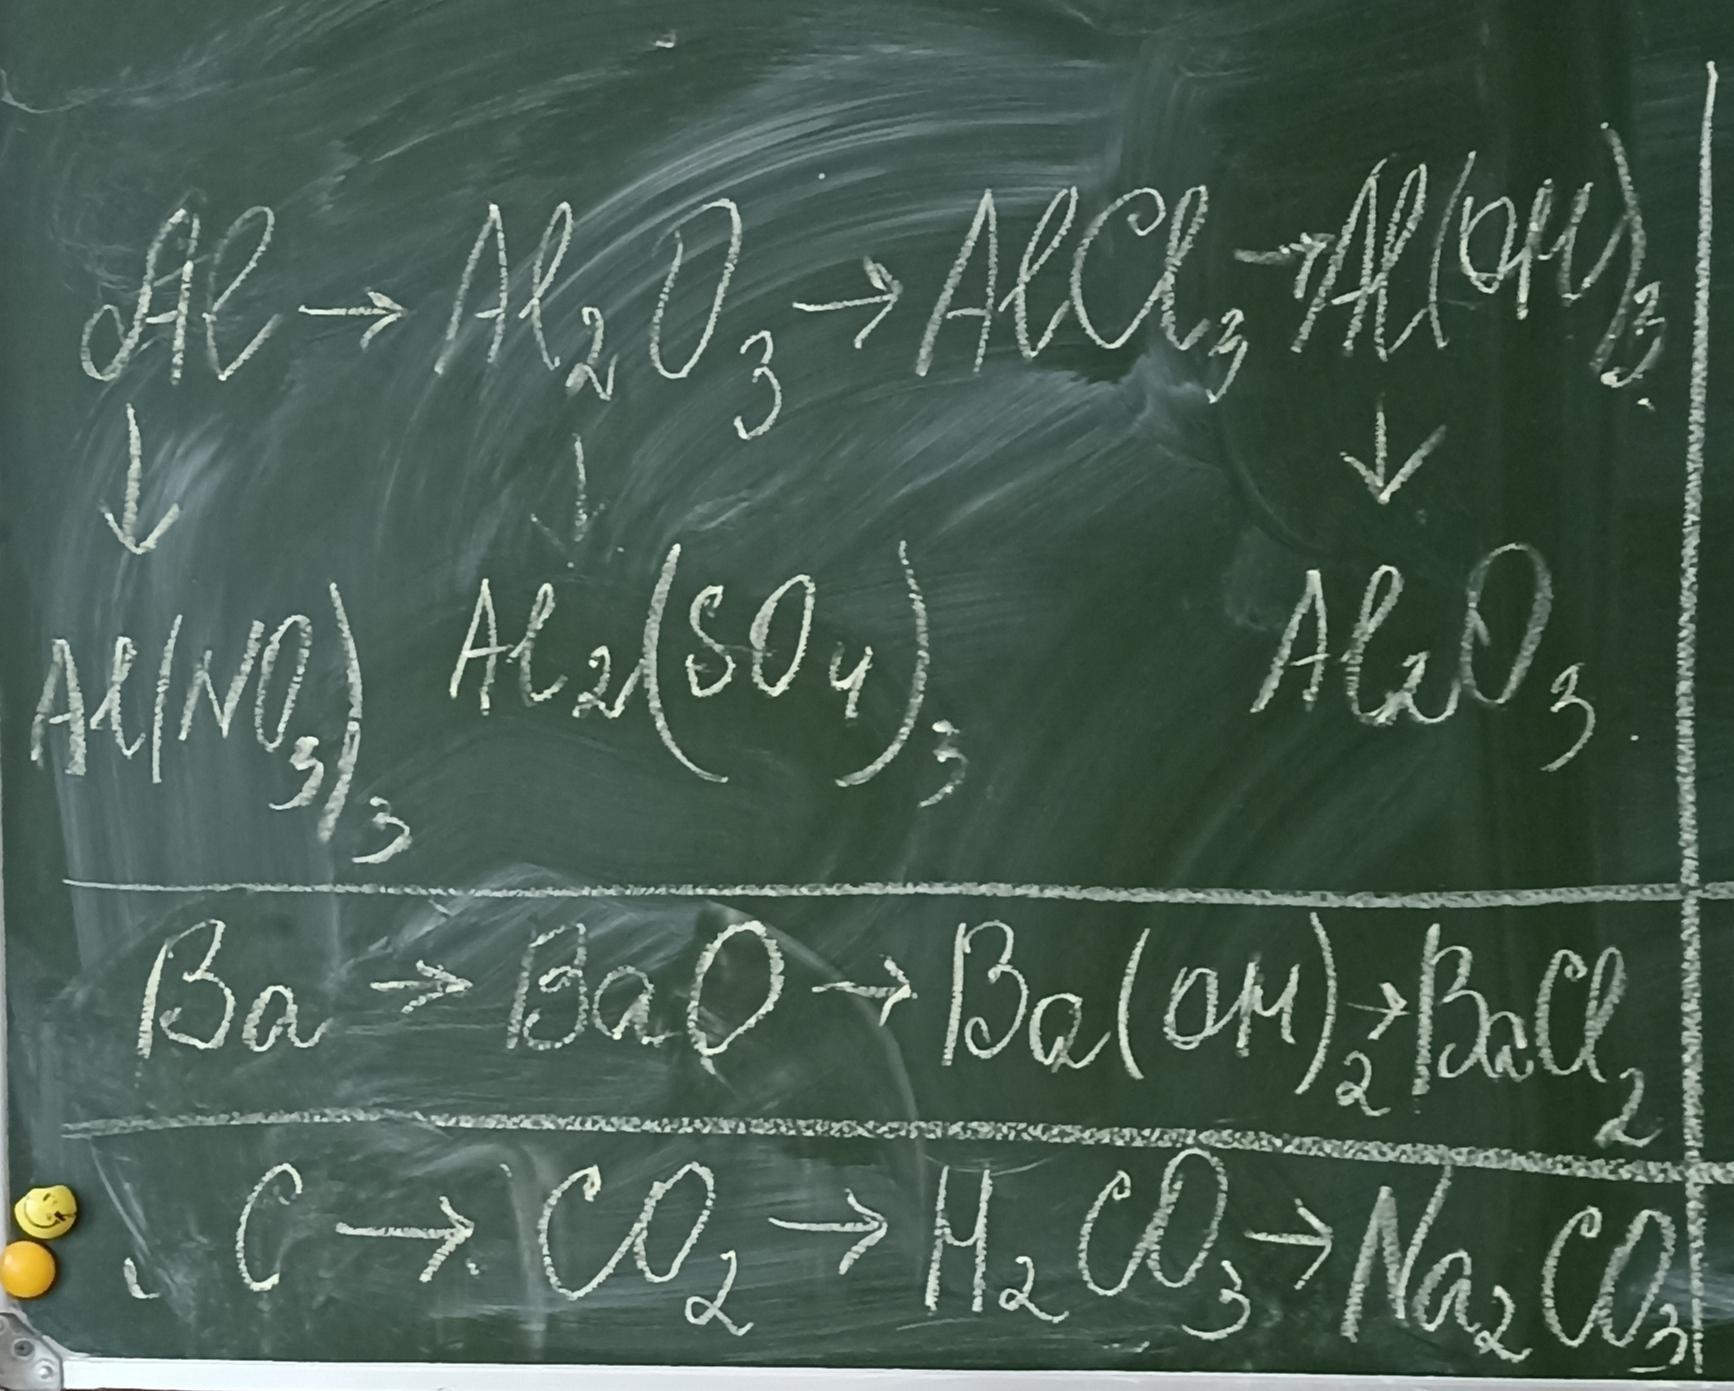 Al → Al₂O₃ → AlCl₃ → Al(OH)₃
↓ ↓ ↓
Al(NO₃)₃ Al₂(SO₄)₃ Al₂O₃
Ba → BaO → Ba(OH)₂ → BaCl₂
C → CO₂ → H₂CO₃ → Na₂CO₃